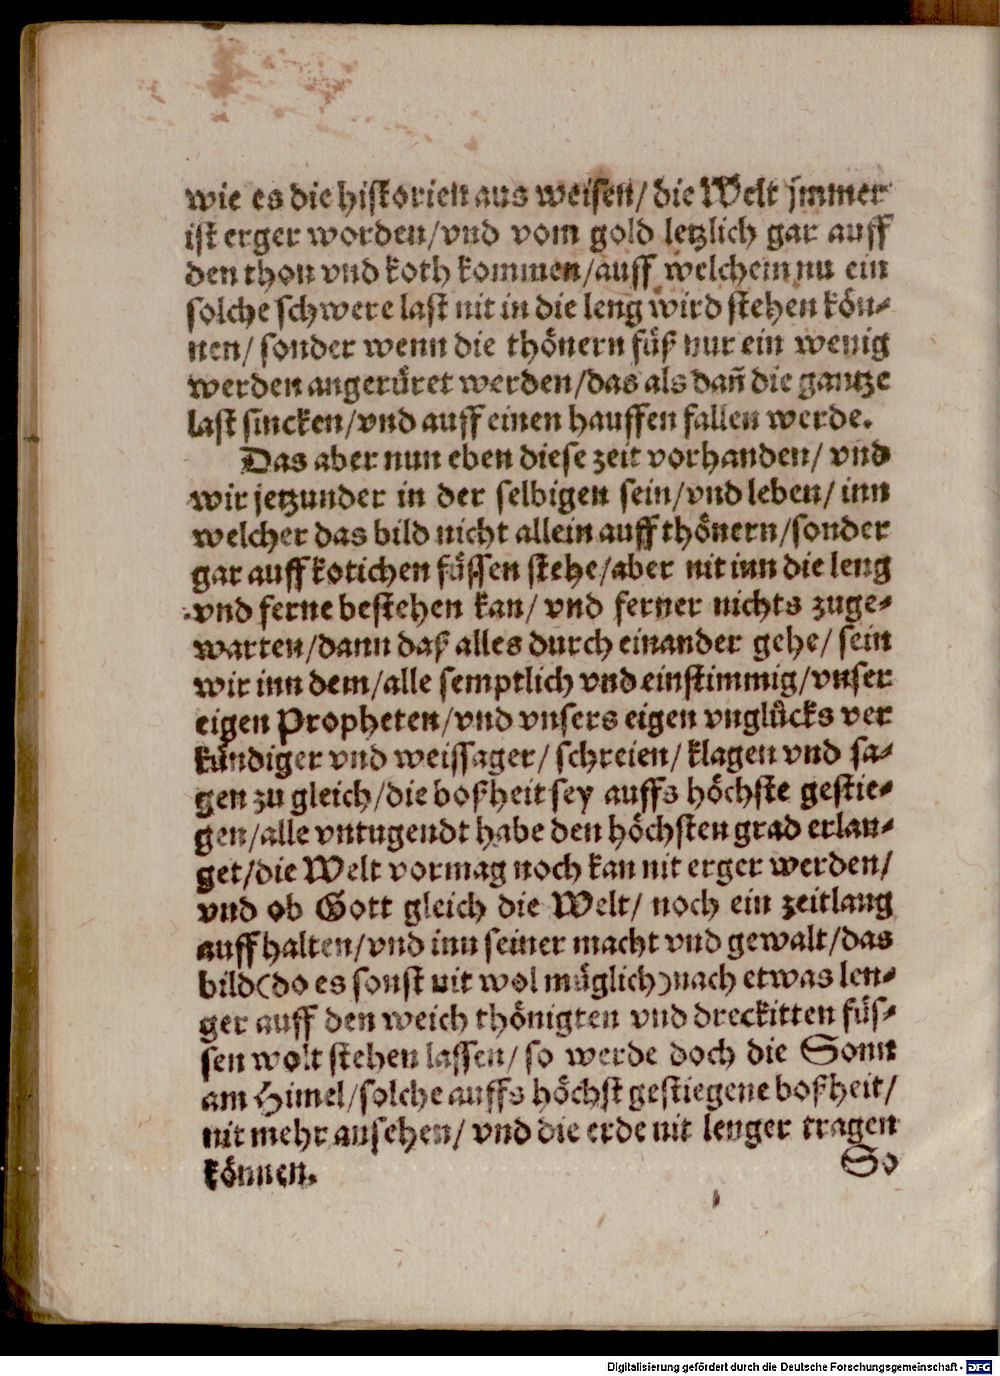 wie es die historien aus weisen/ die Welt jmmer
ist erger worden/vnd vom gold letzlich gar auff
den thon vnd koth kommen/auff welchem nu ein
solche schwere last nit in die leng wird stehen kön-
nen/ sonder wenn die thönern füß nur ein wenig
werden angerüret werden/das als dañ die gantze
last sincken/vnd auff einen hauffen fallen werde.
Das aber nun eben diese zeit vorhanden/ vnd
wir jetzunder in der selbigen sein/vnd leben/ inn
welcher das bild nicht allein auff thönern/sonder
gar auff kotichen füssen stehe/aber nit inn die leng
vnd ferne bestehen kan/ vnd ferner nichts zuge-
warten/dann daß alles durch einander gehe/ sein
wir inn dem/alle semptlich vnd einstimmig/vnser
eigen Propheten/vnd vnsers eigen vnglücks ver
kündiger vnd weissager/ schreien/ klagen vnd sa-
gen zu gleich/die boßheit sey auffs höchste gestie-
gen/alle vntugendt habe den höchsten grad erlan-
get/die Welt vormag noch kan nit erger werden/
vnd ob Gott gleich die Welt/ noch ein zeitlang
auff halten/vnd inn seiner macht vnd gewalt/das
bild(do es sonst nit wol müglich)nach etwas len-
ger auff den weich thönigten vnd dreckitten füs-
sen wolt stehen lassen/ so werde doch die Sonn
am Himel/solche auffs höchst gestiegene boßheit/
nit mehr ansehen/ vnd die erde nit lenger tragen
können.
So
Digitalisierung gefördert durch die Deutsche Forschungsgemeinschaft - DFG